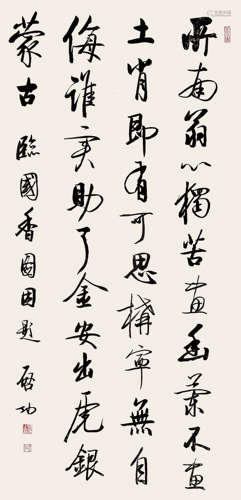 所南翁心獨苦畫出蘭不畫
土肖即有可思構寧無自
侮誰實助了金安出虎銀
蒙古 臨國香圖因題 啟功